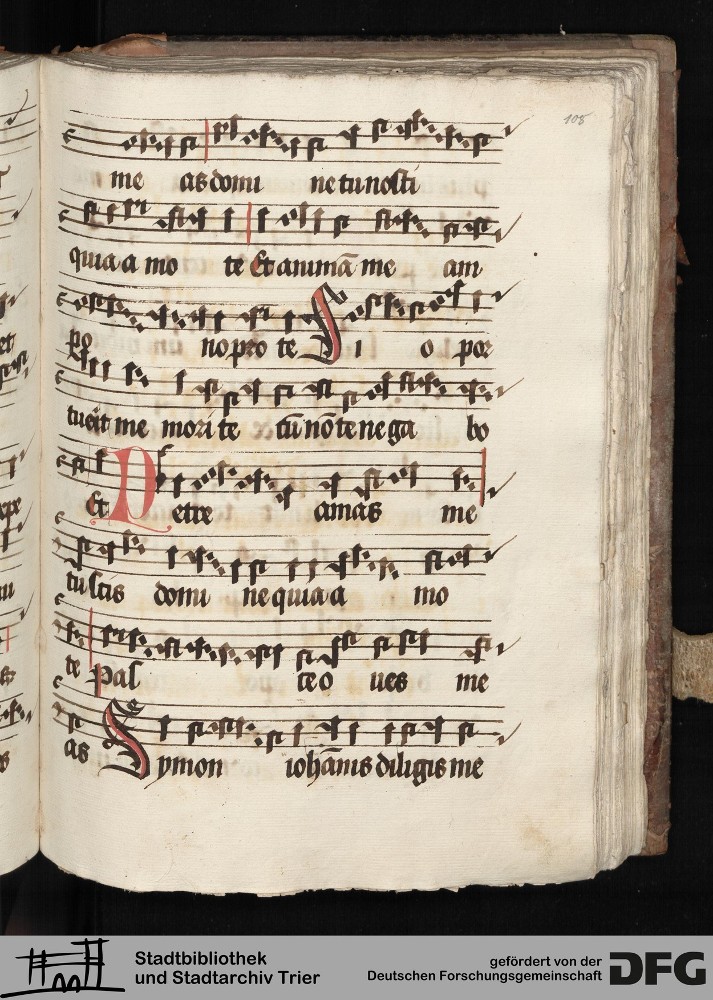 105
me as domi ne tu nosti
quia a mo te Et animā me am
po no pro te Si o por
tu&#x0365;it me mori te cū nō te ne ga bo
Et Petre amas me
tu scis domi ne quia a mo
te Pas ce o ues me
as Symon iohānis diligis me
Stadtbibliothek
und Stadtarchiv Trier
gefördert von der
Deutschen Forschungsgemeinschaft
DFG